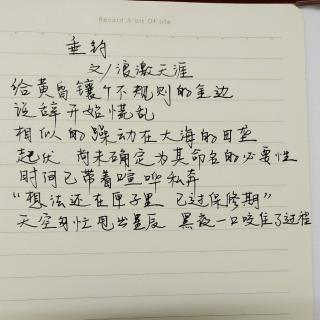 Record A bit Of life
垂钓
文/浪激天涯
给黄昏镶个不规则的金边
说辞开始慌乱
相似的躁动在大海的田垄
起伏 尚未确定为其命名的必要性
时间已带着喧哗私奔
“想法还在匣子里 已过保修期”
天空匆忙甩出星辰 黑夜一口咬住了过程